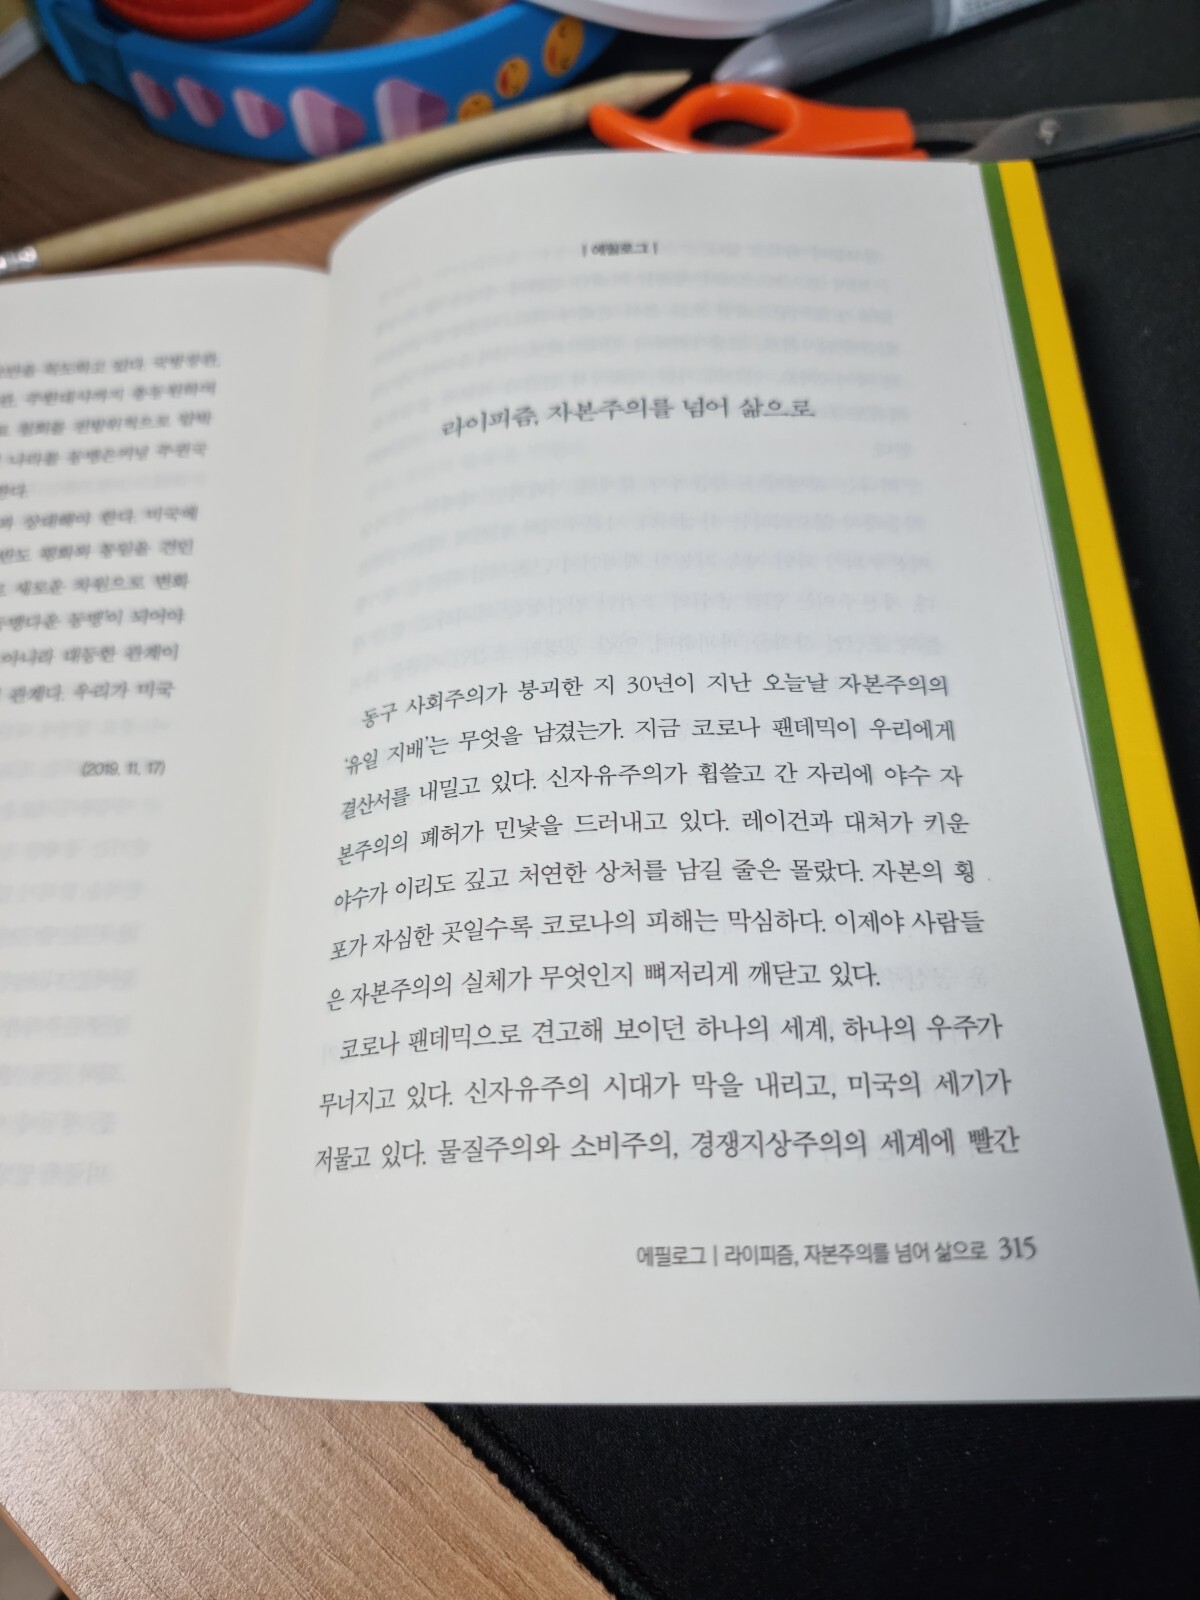 수반을 적도하고 있다. 국방장관,
주한대사까지 총동원하여
평화를 전방위적으로 압박
나라를 동맹은커녕 주권국
한다.
상대해야 한다. 미국에
반도 평화와 통일을 견인
새로운 차원으로 변화
동맹다운 동맹'이 되어야
아니라 대등한 관계이
관계다. 우리가 미국
(2019. 11. 17)
| 에필로그 |
라이피즘, 자본주의를 넘어 삶으로
동구 사회주의가 붕괴한 지 30년이 지난 오늘날 자본주의의
'유일 지배'는 무엇을 남겼는가. 지금 코로나 팬데믹이 우리에게
결산서를 내밀고 있다. 신자유주의가 휩쓸고 간 자리에 야수 자
본주의의 폐허가 민낯을 드러내고 있다. 레이건과 대처가 키운
야수가 이리도 깊고 처연한 상처를 남길 줄은 몰랐다. 자본의 횡
포가 자심한 곳일수록 코로나의 피해는 막심하다. 이제야 사람들
은 자본주의의 실체가 무엇인지 뼈저리게 깨닫고 있다.
코로나 팬데믹으로 견고해 보이던 하나의 세계, 하나의 우주가
무너지고 있다. 신자유주의 시대가 막을 내리고, 미국의 세기가
저물고 있다. 물질주의와 소비주의, 경쟁지상주의의 세계에 빨간
에필로그 | 라이피즘, 자본주의를 넘어 삶으로 315